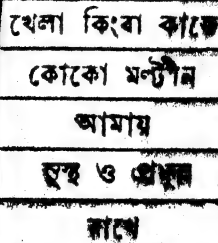 খেলা কিংবা কাজে
কোকো মল্টীন
আমায়
সুস্থ ও প্রফুল্ল
রাখে